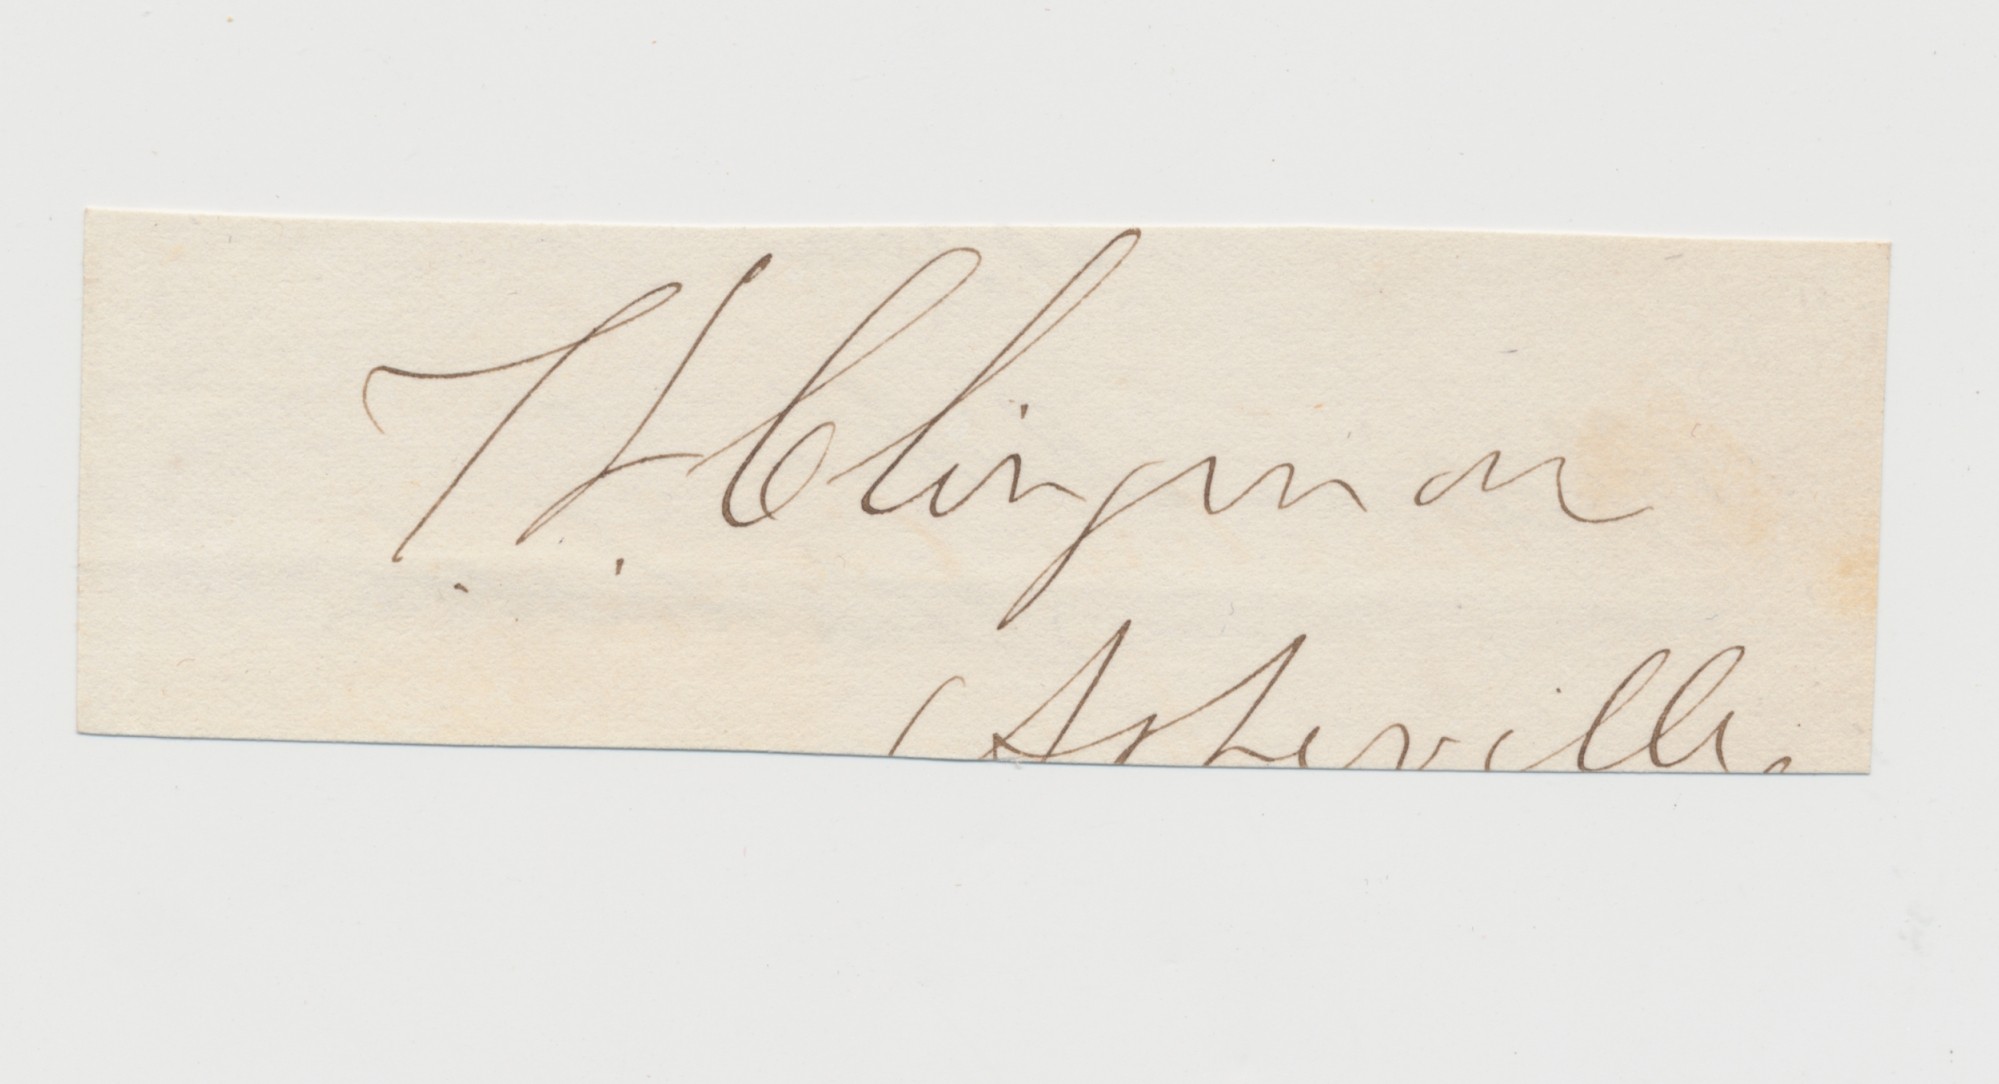 T. L. Clingman
Asheville,